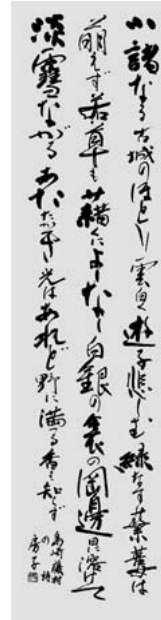 小諸なる古城のほとり雲白く遊子悲しむ緑なす蘩蔞は
萌えず若草も藉くによしなし白銀の衾の岡邊日に溶けて
淡雪流るあたたかき光はあれど野に満つる香も知らず
島崎藤村
の詩
房子